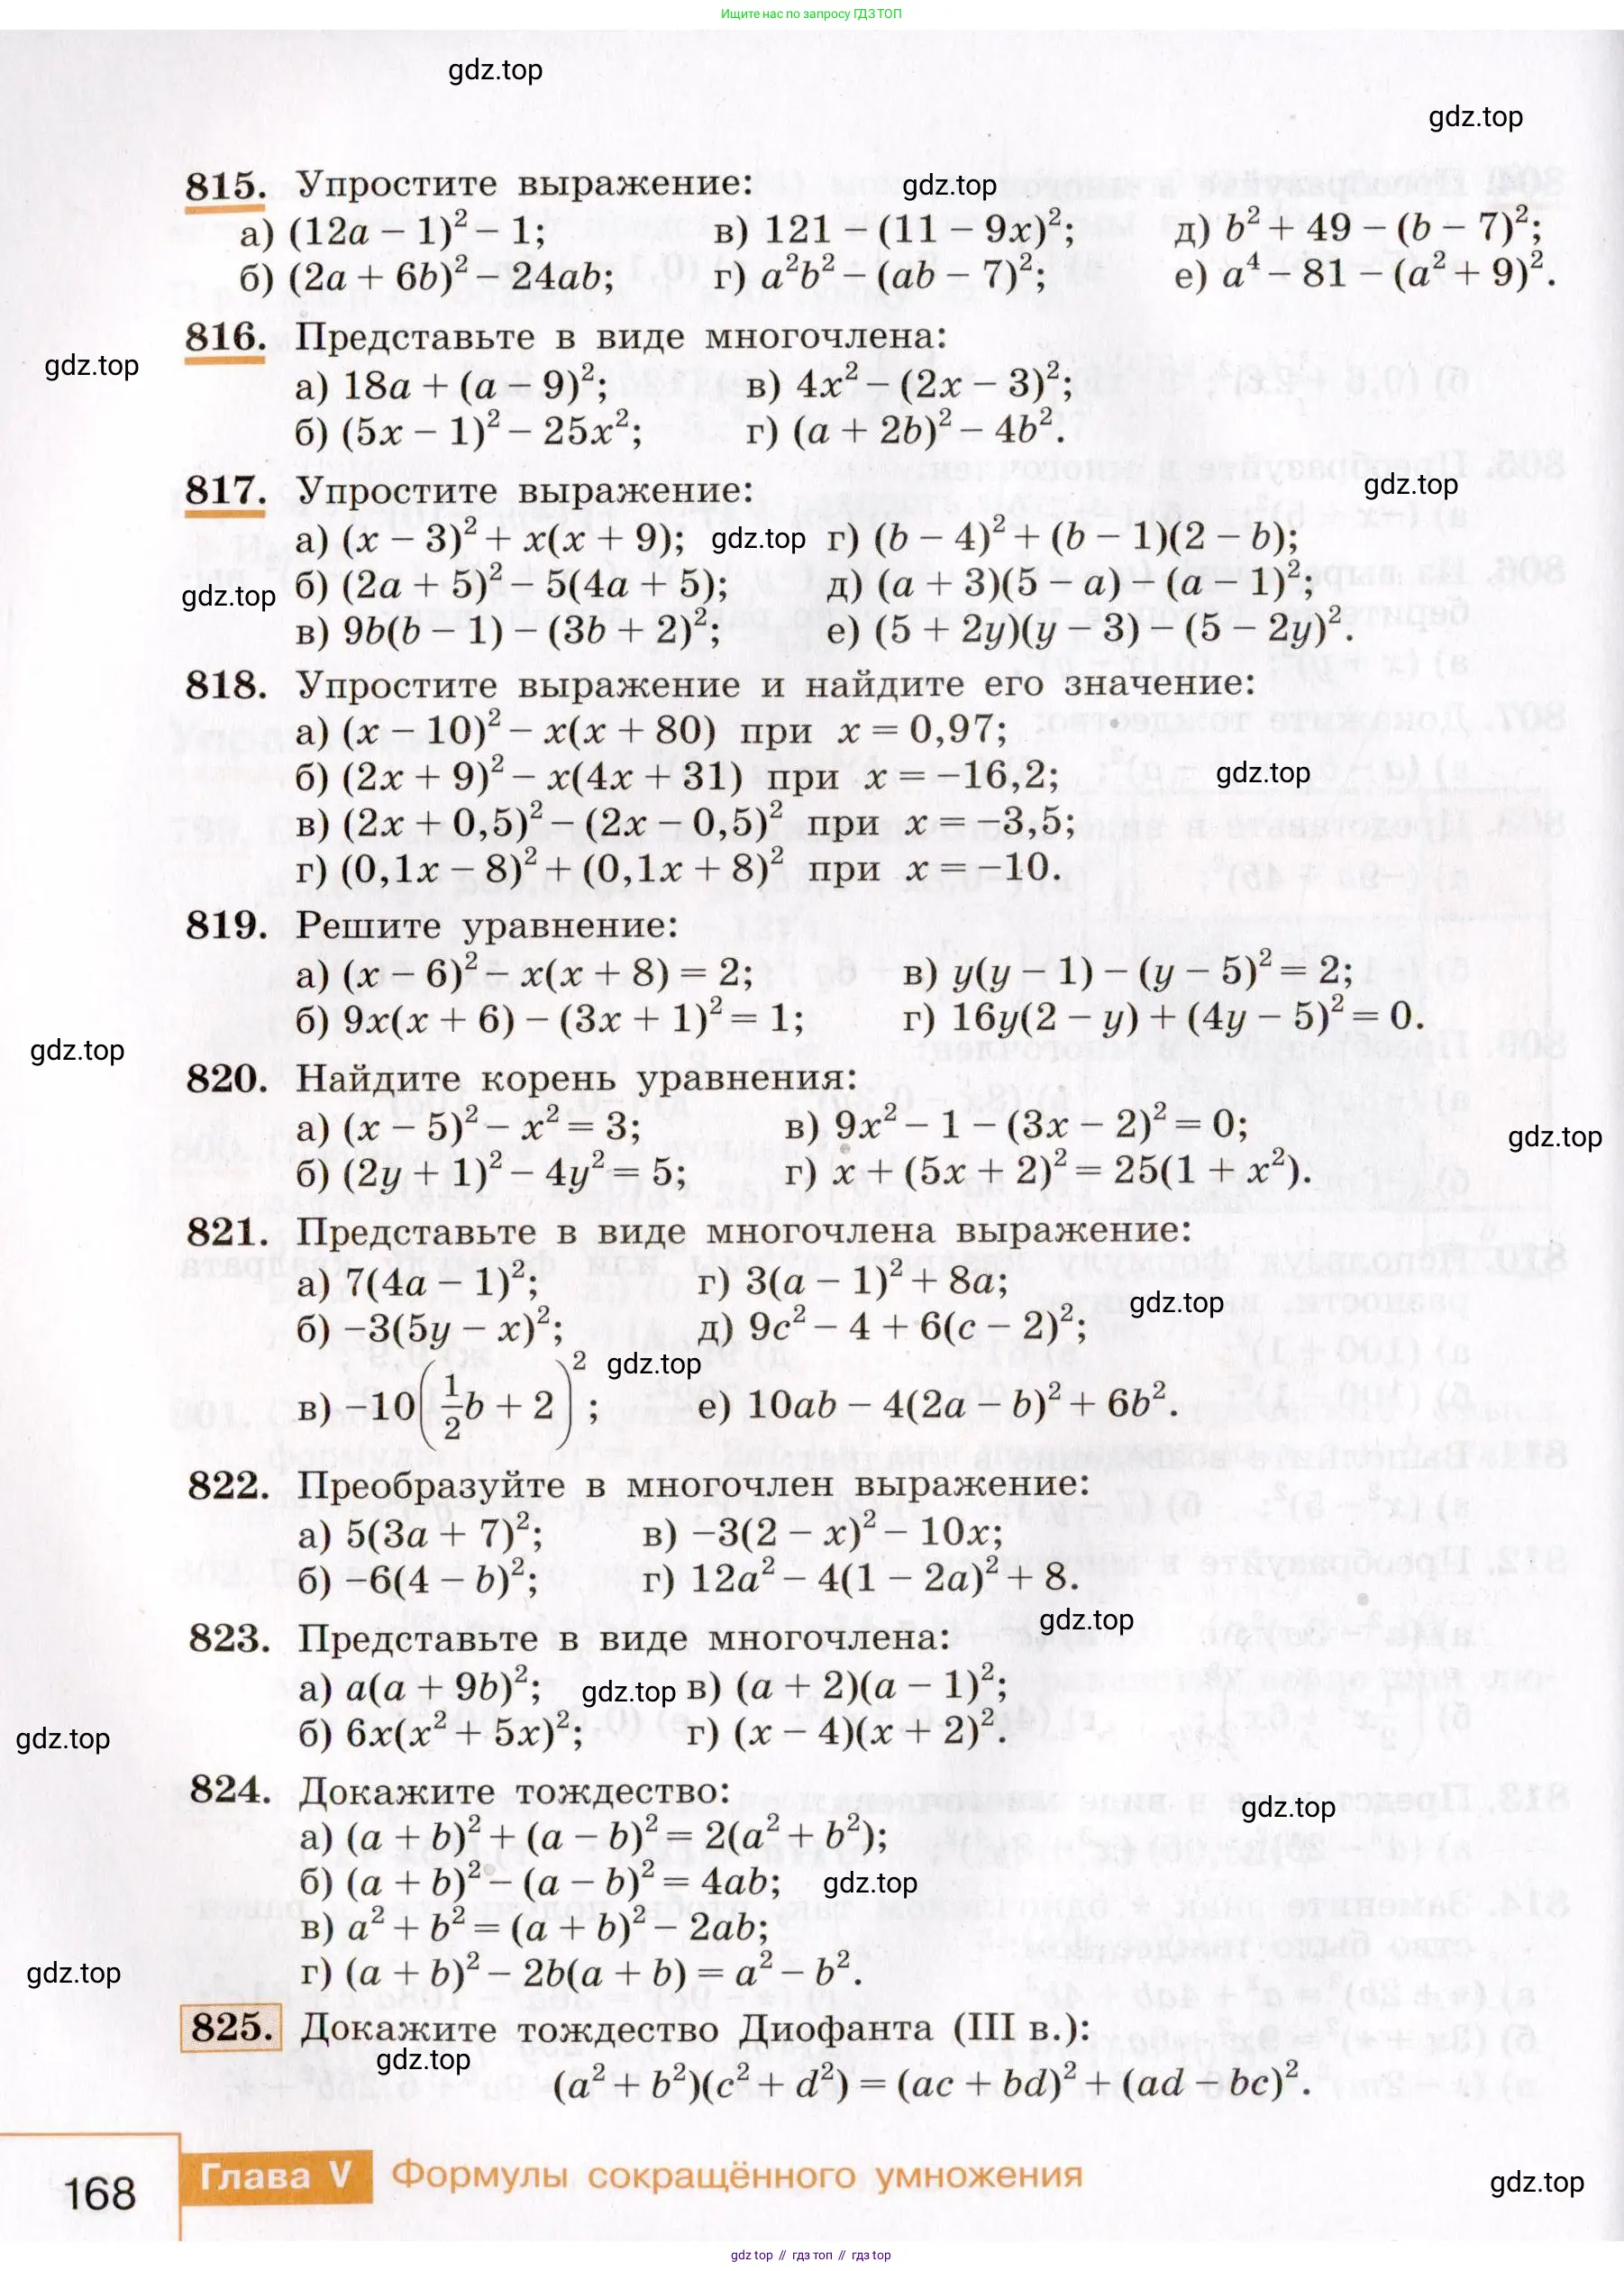 Ищите нас по запросу ГДЗ ТОП
gdz.top
gdz.top
815. Упростите выражение: gdz.top
а) (12a − 1)² − 1; в) 121 − (11 − 9x)²; д) b² + 49 − (b − 7)²;
б) (2a + 6b)² − 24ab; г) a²b² − (ab − 7)²; е) a⁴ − 81 − (a² + 9)².
816. Представьте в виде многочлена:
gdz.top
а) 18a + (a − 9)²; в) 4x² − (2x − 3)²;
б) (5x − 1)² − 25x²; г) (a + 2b)² − 4b².
817. Упростите выражение: gdz.top
а) (x − 3)² + x(x + 9); gdz.top г) (b − 4)² + (b − 1)(2 − b);
gdz.top б) (2a + 5)² − 5(4a + 5); д) (a + 3)(5 − a) − (a − 1)²;
в) 9b(b − 1) − (3b + 2)²; е) (5 + 2y)(y − 3) − (5 − 2y)².
818. Упростите выражение и найдите его значение:
а) (x − 10)² − x(x + 80) при x = 0,97;
б) (2x + 9)² − x(4x + 31) при x = −16,2; gdz.top
в) (2x + 0,5)² − (2x − 0,5)² при x = −3,5;
г) (0,1x − 8)² + (0,1x + 8)² при x = −10.
819. Решите уравнение:
а) (x − 6)² − x(x + 8) = 2; в) y(y − 1) − (y − 5)² = 2;
б) 9x(x + 6) − (3x + 1)² = 1; г) 16y(2 − y) + (4y − 5)² = 0.
gdz.top
820. Найдите корень уравнения:
а) (x − 5)² − x² = 3; в) 9x² − 1 − (3x − 2)² = 0; gdz.top
б) (2y + 1)² − 4y² = 5; г) x + (5x + 2)² = 25(1 + x²).
821. Представьте в виде многочлена выражение:
а) 7(4a − 1)²; г) 3(a − 1)² + 8a; gdz.top
б) −3(5y − x)²; д) 9c² − 4 + 6(c − 2)²;
gdz.top
в) −10(1/2 b + 2)²; е) 10ab − 4(2a − b)² + 6b².
822. Преобразуйте в многочлен выражение:
а) 5(3a + 7)²; в) −3(2 − x)² − 10x;
б) −6(4 − b)²; г) 12a² − 4(1 − 2a)² + 8.
823. Представьте в виде многочлена: gdz.top
а) a(a + 9b)²; gdz.top в) (a + 2)(a − 1)²;
gdz.top б) 6x(x² + 5x)²; г) (x − 4)(x + 2)².
824. Докажите тождество:
gdz.top
а) (a + b)² + (a − b)² = 2(a² + b²);
б) (a + b)² − (a − b)² = 4ab; gdz.top
в) a² + b² = (a + b)² − 2ab;
gdz.top г) (a + b)² − 2b(a + b) = a² − b².
825. Докажите тождество Диофанта (III в.):
gdz.top
(a² + b²)(c² + d²) = (ac + bd)² + (ad − bc)².
168 Глава V Формулы сокращённого умножения
gdz.top
gdz top // гдз топ // gdz top